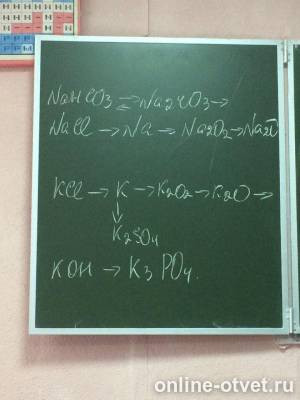 NaHCO3 ⇌ Na2CO3 →
NaCl → Na → Na2O2 → Na2O
KCl → K → K2O2 → K2O →
↓
K2SO4
KOH → K3PO4.
online-otvet.ru